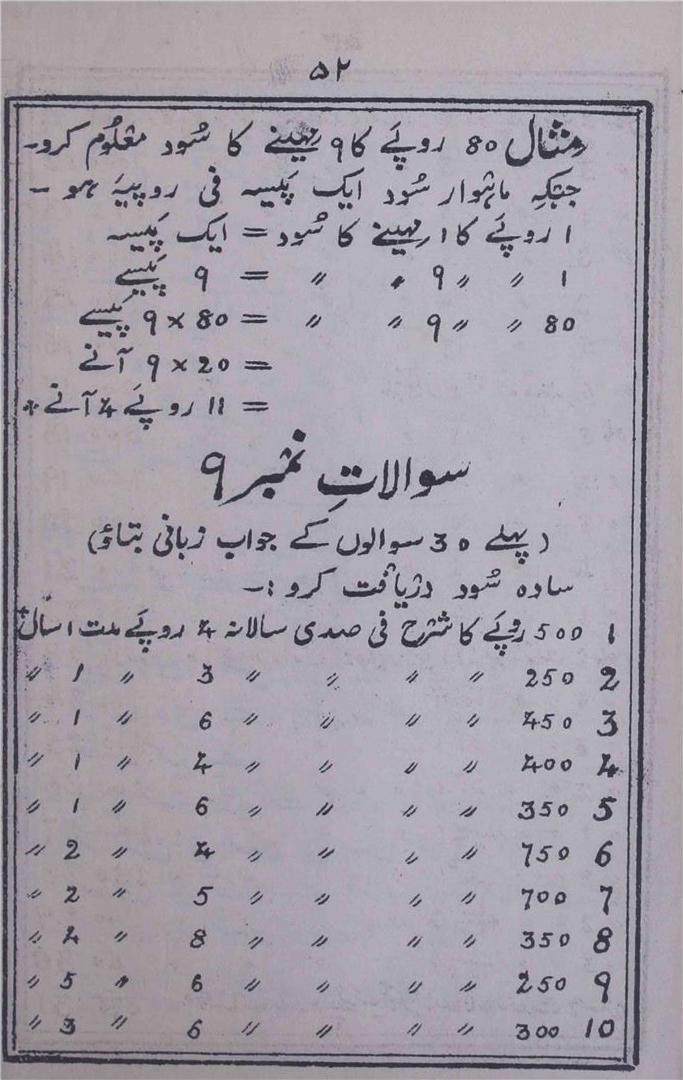 ۵۲
مثال 80 روپے کا 9 مہینے کا سُود معلُوم کرو۔
جبکہ ماہوار سُود ایک پَیسہ فی روپیہ ہو ۔
1 روپے کا 1 مہینے کا سُود = ایک پَیسہ
1 〃 〃 9 〃 〃 = 9 پَیسے
80 〃 〃 9 〃 〃 = 80 × 9 پَیسے
= 20 × 9 آنے
= 11 روپے 4 آنے *
سوالاتِ نمبر 9
(پہلے 30 سوالوں کے جواب زبانی بتاؤ)
سادہ سُود دریافت کرو :۔
1 500 روپے کا شرح فی صدی سالانہ 4 روپے مدت 1 سال
2 250 〃 〃 〃 〃 3 〃 1 〃
3 450 〃 〃 〃 〃 6 〃 1 〃
4 400 〃 〃 〃 〃 4 〃 1 〃
5 350 〃 〃 〃 〃 6 〃 1 〃
6 750 〃 〃 〃 〃 4 〃 2 〃
7 700 〃 〃 〃 〃 5 〃 2 〃
8 350 〃 〃 〃 〃 8 〃 4 〃
9 250 〃 〃 〃 〃 6 〃 5 〃
10 300 〃 〃 〃 〃 6 〃 3 〃